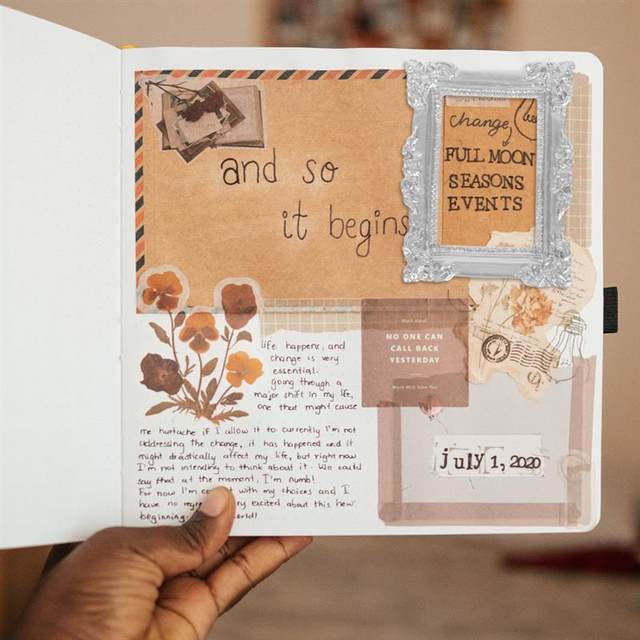 and so
it begins
change
FULL MOON
SEASONS
EVENTS
NO ONE CAN
CALL BACK
YESTERDAY
life happens, and
change is very
essential.
going through a
major shift in my life,
one that might cause
me hurtache if I allow it to currently I'm not
addressing the change, it has happened and it
might drastically affect my life, but right now
I'm not intending to think about it. We could
say that at the moment, I'm numb!
For now I'm with my choices and I
have no excited about this new
beginning
july 1, 2020